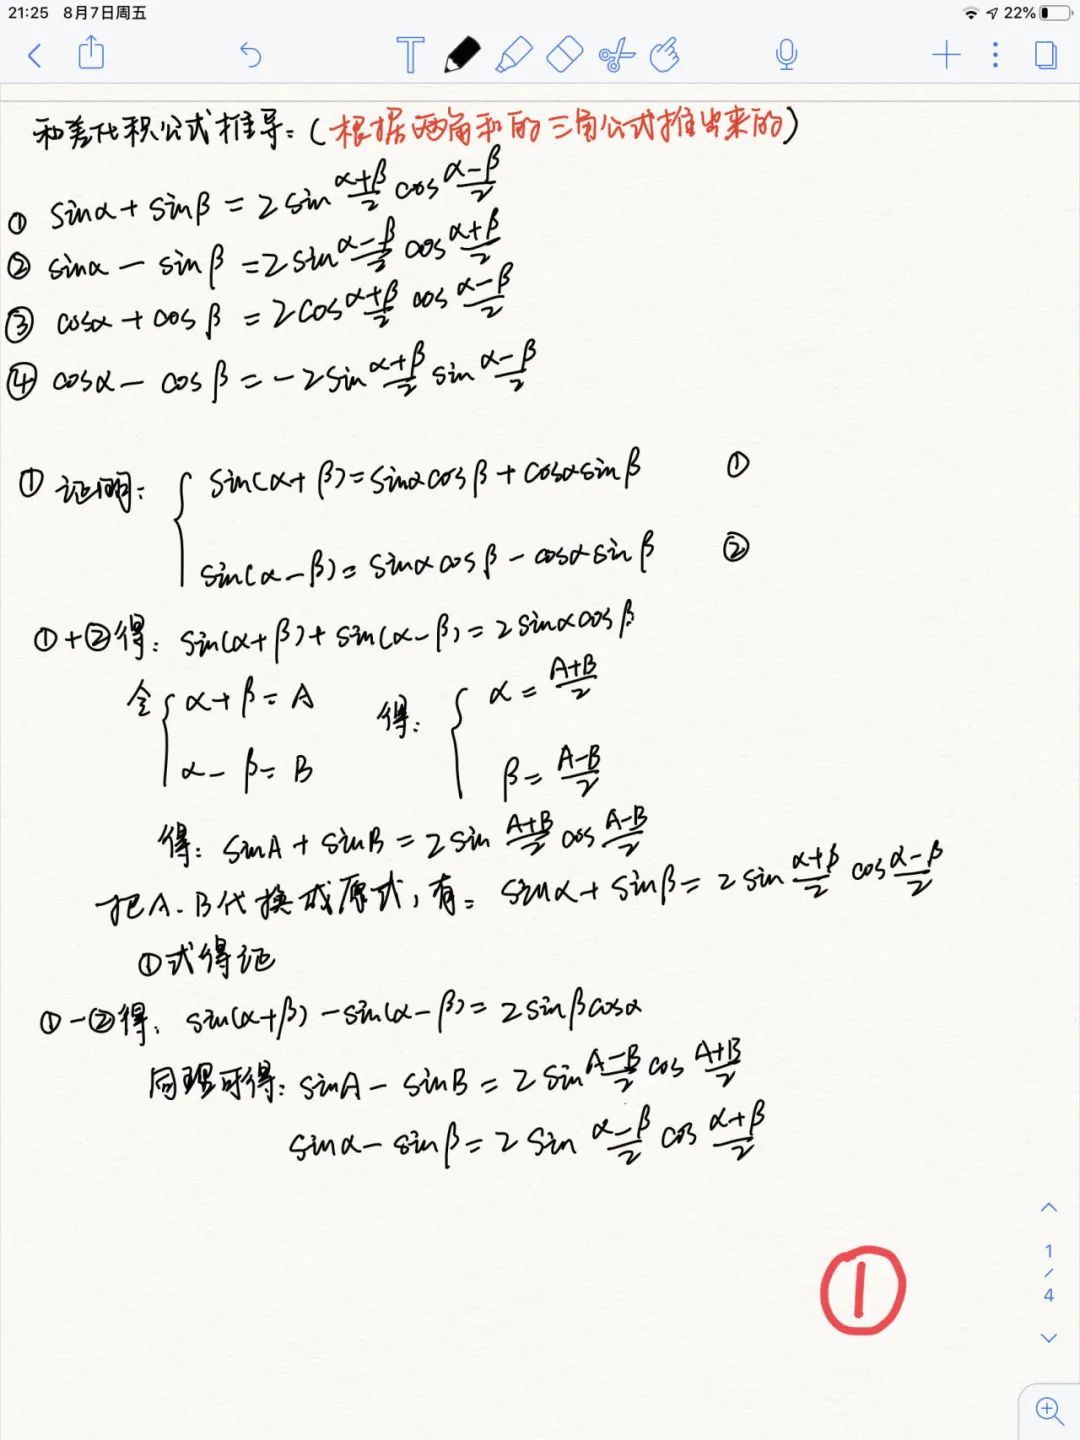 21:25 8月7日周五 22%
和差化积公式推导:(根据两角和的三角公式推出来的)
① sinα + sinβ = 2 sin (α+β)/2 cos (α-β)/2
② sinα - sinβ = 2 sin (α-β)/2 cos (α+β)/2
③ cosα + cosβ = 2 cos (α+β)/2 cos (α-β)/2
④ cosα - cosβ = -2 sin (α+β)/2 sin (α-β)/2
① 证明: { sin(α+β) = sinαcosβ + cosαsinβ ①
sin(α-β) = sinαcosβ - cosαsinβ ②
①+②得: sin(α+β) + sin(α-β) = 2 sinαcosβ
令 { α+β = A 得: { α = (A+B)/2
α-β = B β = (A-B)/2
得: sinA + sinB = 2 sin (A+B)/2 cos (A-B)/2
把A.B代换成原式,有: sinα + sinβ = 2 sin (α+β)/2 cos (α-β)/2
①式得证
①-②得: sin(α+β) - sin(α-β) = 2 sinβcosα
同理可得: sinA - sinB = 2 sin (A-B)/2 cos (A+B)/2
sinα - sinβ = 2 sin (α-β)/2 cos (α+β)/2
①
1
/
4